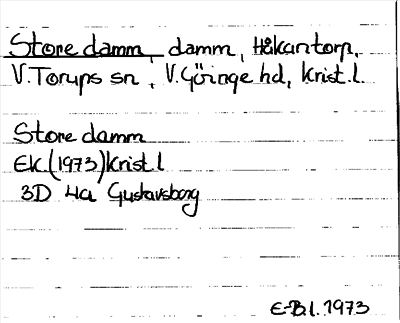 Store damm, damm, Håkantorp,
V. Torups sn, V. Göinge hd, Krist. l.
Store damm
EK (1973) Krist. l
3D 4a Gustavsborg
E-B. l. 1973